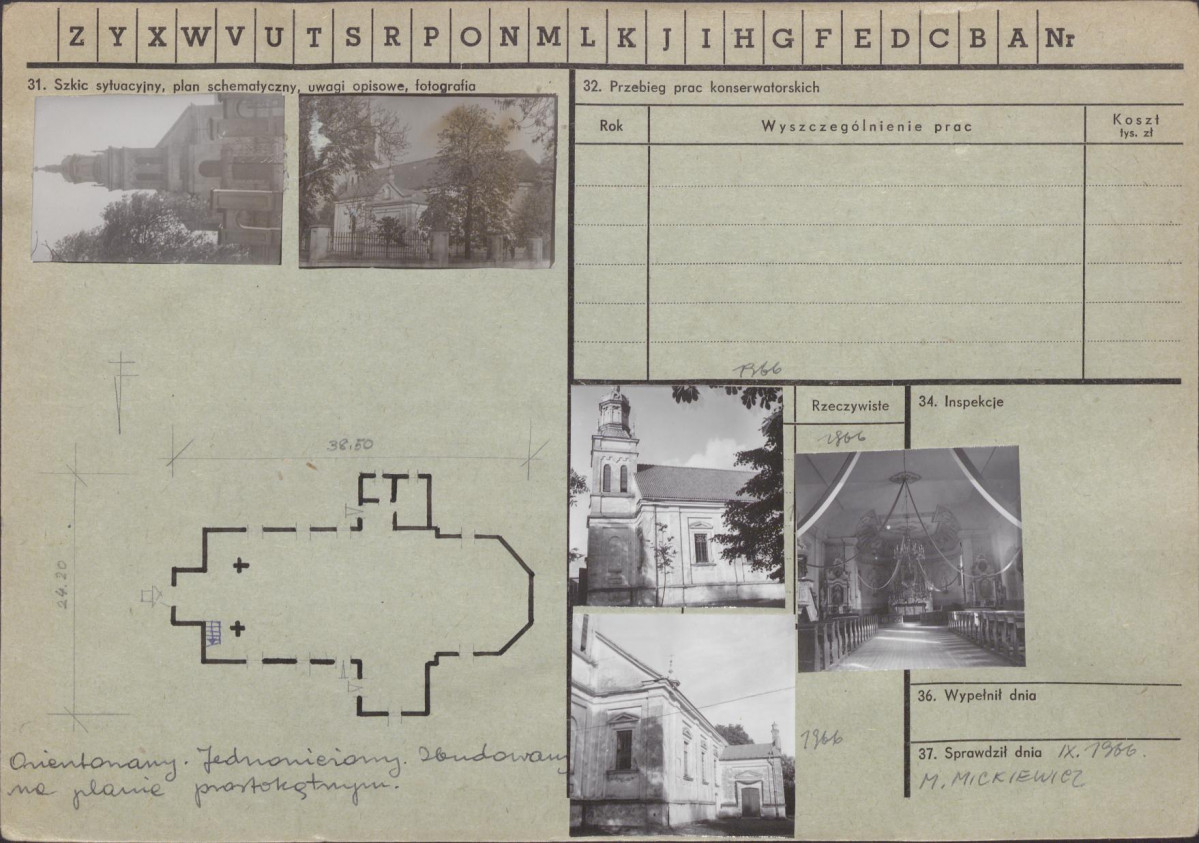 Z Y X W V U T S R P O N M L K J I H G F E D C B A Nr
31. Szkic sytuacyjny, plan schematyczny, uwagi opisowe, fotografia
38.50
24.20
Orientowany. Jednonawowy. Zbudowany
na planie prostokątnym.
32. Przebieg prac konserwatorskich
Rok
Wyszczególnienie prac
Koszt
tys. zł
1966
Rzeczywiste
1966
34. Inspekcje
1966
36. Wypełnił dnia
37. Sprawdził dnia IX. 1966.
M. MICKIEWICZ